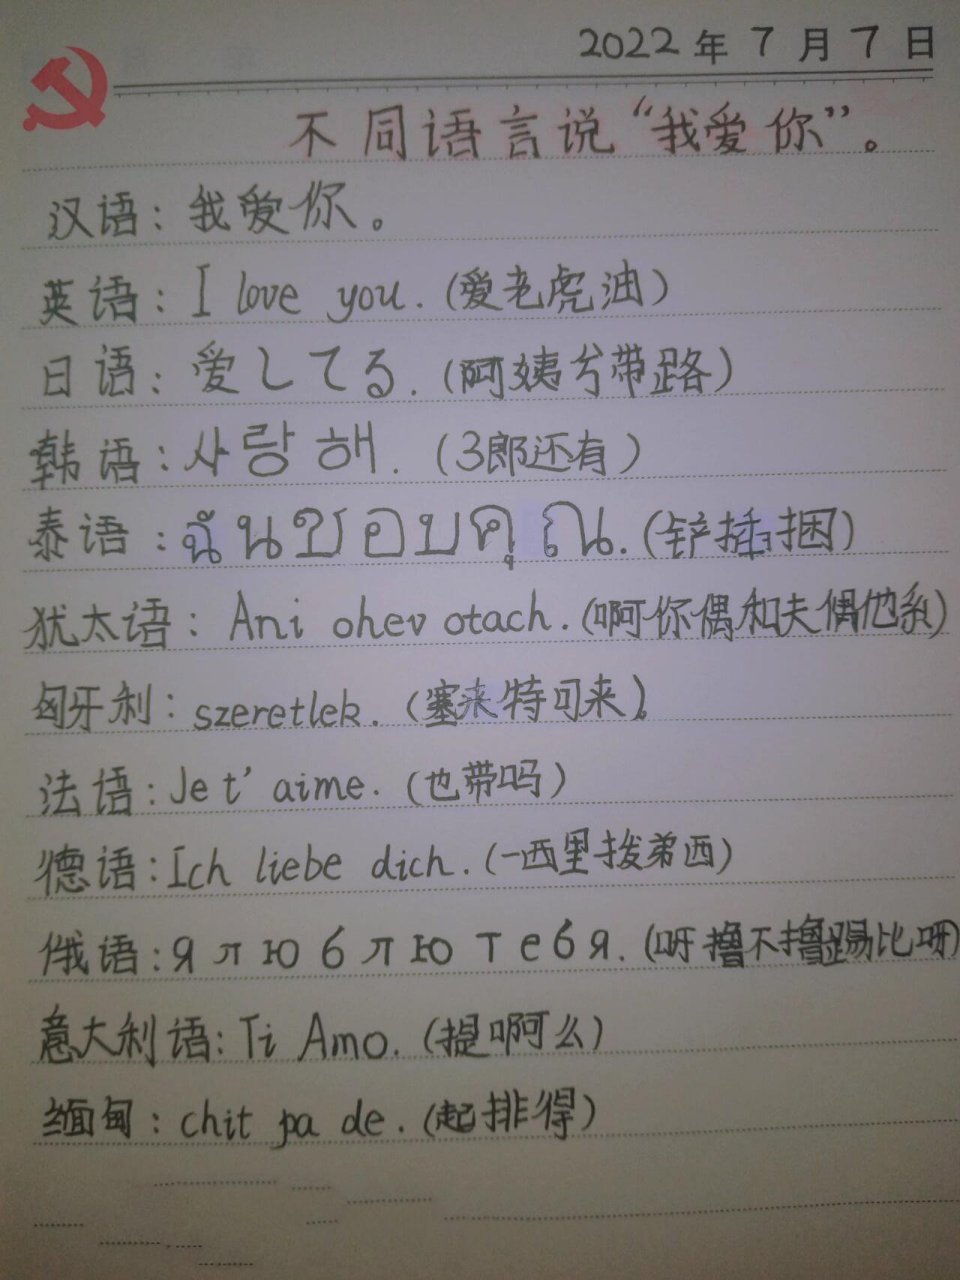 2022年7月7日
不同语言说“我爱你”。
汉语：我爱你。
英语：I love you.（爱老虎油）
日语：愛してる.（阿姨兮带路）
韩语：사랑해.（3郎还有）
泰语：ฉันชอบคุณ.（铲插捆）
犹太语：Ani ohev otach.（啊你偶和夫偶他系）
匈牙利：szeretlek.（塞来特可来）
法语：Je t'aime.（也带吗）
德语：Ich liebe dich.（一西里拨弟西）
俄语：я люблю тебя.（呀撸不撸踢比呀）
意大利语：Ti Amo.（提啊么）
缅甸：chit pa de.（起排得）